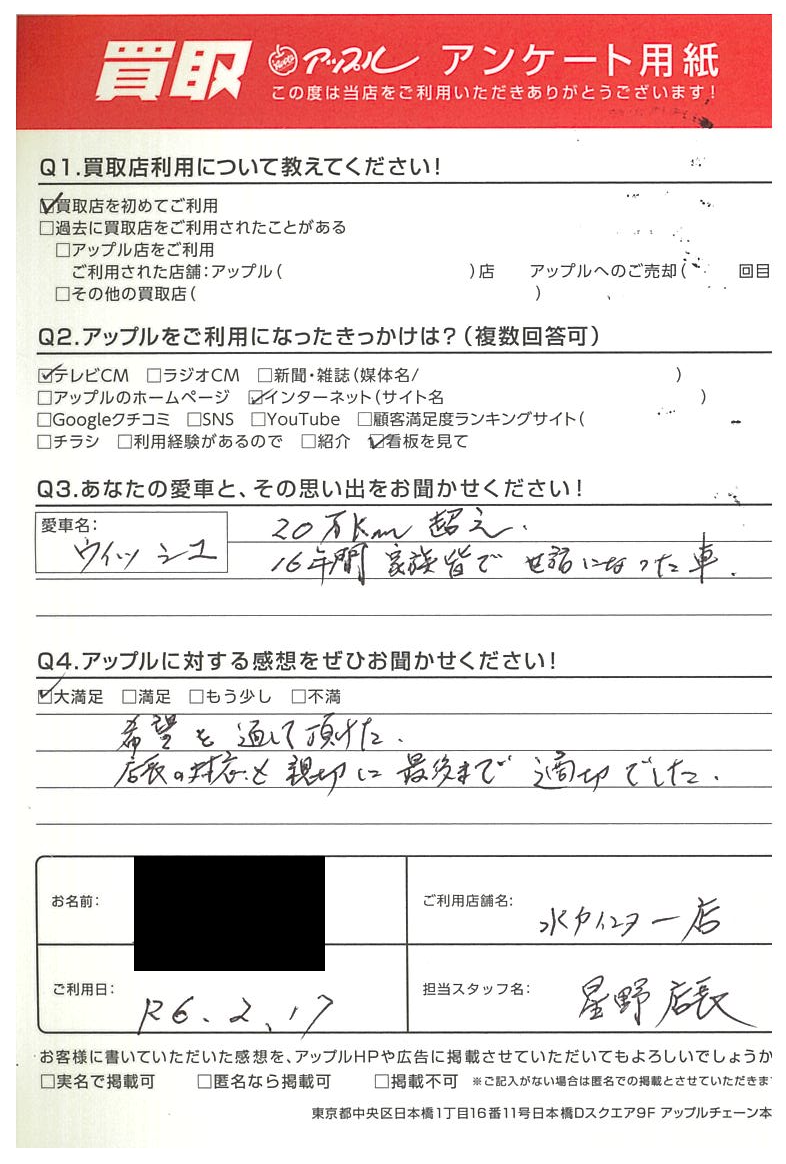 買取 アップル アンケート用紙
この度は当店をご利用いただきありがとうございます!
Q1.買取店利用について教えてください!
☑買取店を初めてご利用
□過去に買取店をご利用されたことがある
□アップル店をご利用
ご利用された店舗:アップル( )店 アップルへのご売却( 回目
□その他の買取店( )
Q2.アップルをご利用になったきっかけは?(複数回答可)
☑テレビCM □ラジオCM □新聞・雑誌(媒体名/ )
□アップルのホームページ ☑インターネット(サイト名 )
□Googleクチコミ □SNS □YouTube □顧客満足度ランキングサイト(
□チラシ □利用経験があるので □紹介 ☑看板を見て
Q3.あなたの愛車と、その思い出をお聞かせください!
愛車名: ウィッシュ
20万Km 超え.
16年間 家族皆で せ話になった車.
Q4.アップルに対する感想をぜひお聞かせください!
☑大満足 □満足 □もう少し □不満
希望を通して頂けた.
店長の対応も親切に最後まで適切でした.
お名前:
ご利用店舗名: 水戸インター店
ご利用日: R6.2.17
担当スタッフ名: 星野店長
お客様に書いていただいた感想を、アップルHPや広告に掲載させていただいてもよろしいでしょうか
□実名で掲載可 □匿名なら掲載可 □掲載不可 ※ご記入がない場合は匿名での掲載とさせていただきま
東京都中央区日本橋1丁目16番11号日本橋Dスクエア9F アップルチェーン本